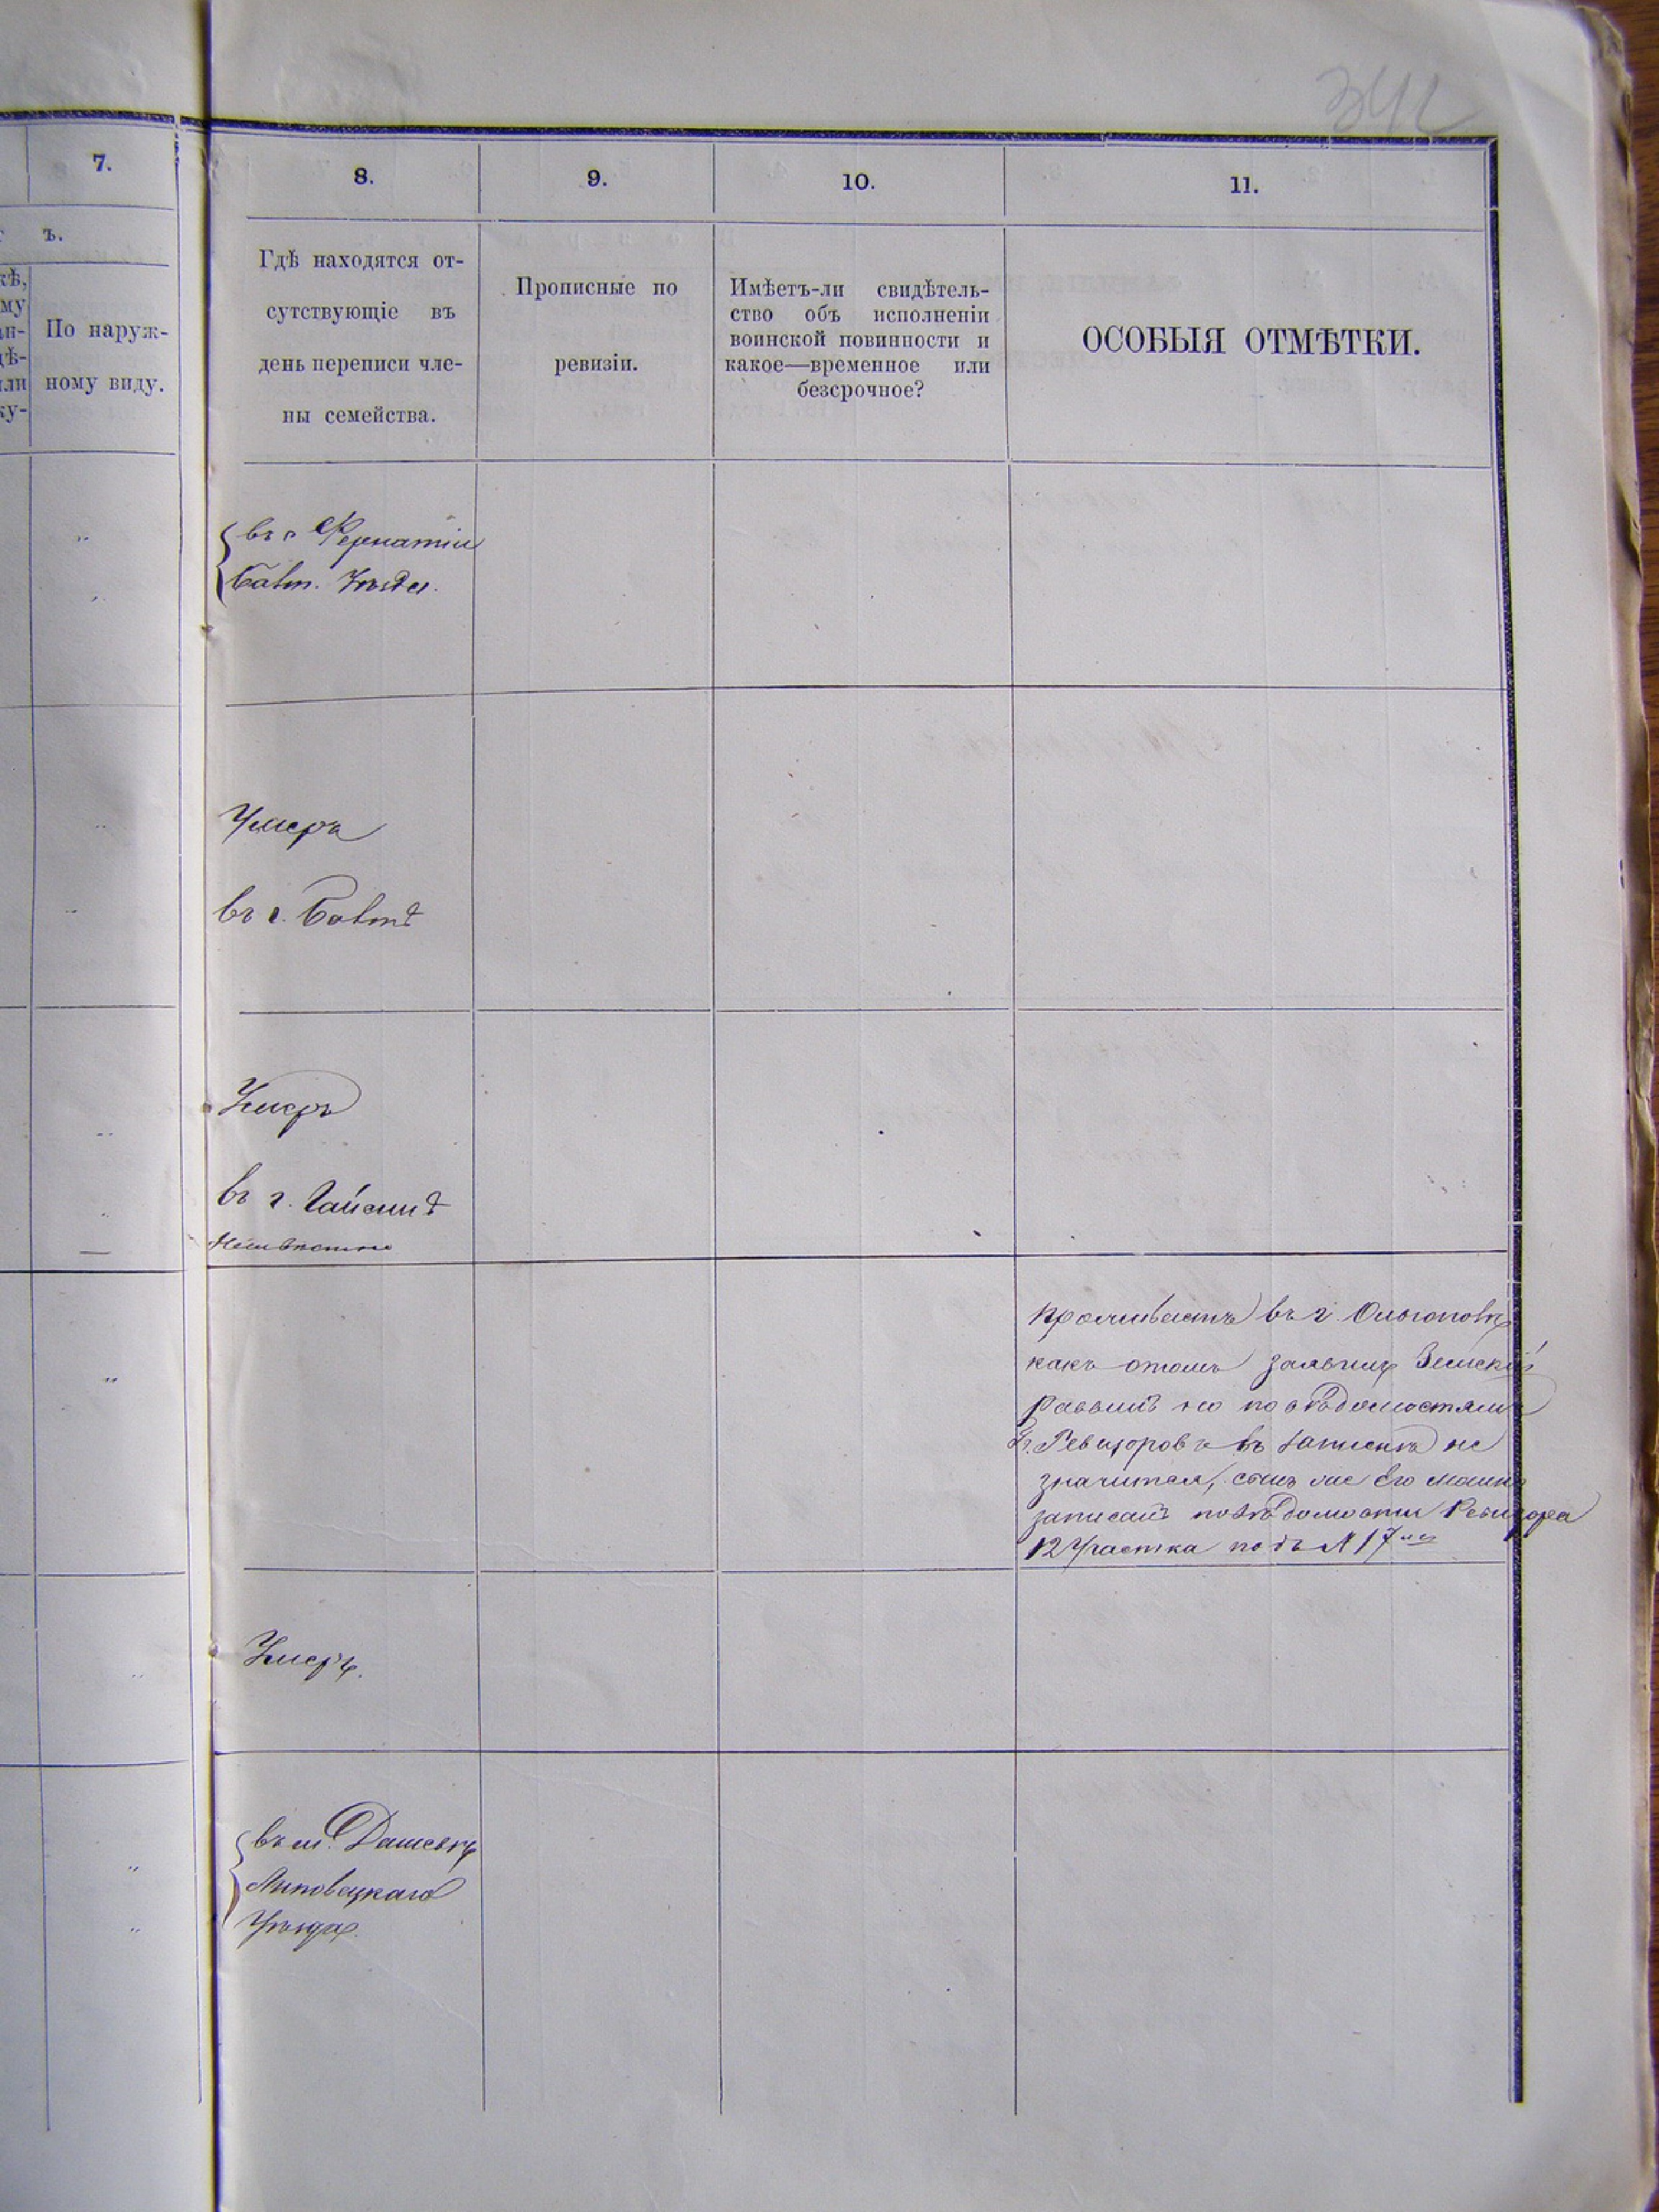 342
7.
8.
9.
10.
11.
ъ.
кѣ,
му
ан-
дѣ-
или
ку-
По наруж-
ному виду.
Гдѣ находятся от-
сутствующіе въ
день переписи чле-
ны семейства.
Прописные по
ревизіи.
Имѣетъ-ли свидѣтель-
ство объ исполненіи
воинской повинности и
какое—временное или
безсрочное?
ОСОБЫЯ ОТМѢТКИ.
въ с
Балт. Уѣзда.
Умеръ
въ г. Балтѣ
Умеръ
въ г. Гайсинѣ
Неизвѣстно
Проживаетъ въ г. Ольгополѣ
какъ о томъ заявилъ Земскій
Раввинъ но по вѣдомостямъ
Г. Ревизоровъ въ запискѣ не
значится, сынъ же его
записанъ по вѣдомости Ревизора
12 Участка подъ № 17
Умеръ.
въ м. Дашевѣ
Липовецкаго
Уѣзда.